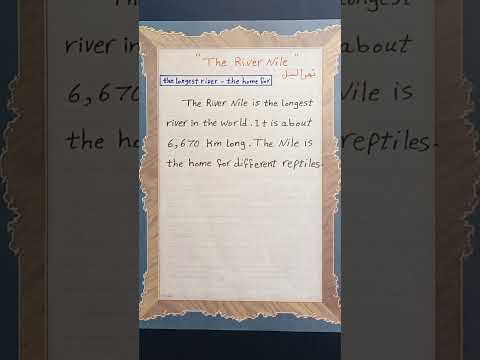 "The River Nile"
نهر النيل
the longest river - the home for
The River Nile is the longest
river in the world. It is about
6,670 Km long. The Nile is
the home for different reptiles.